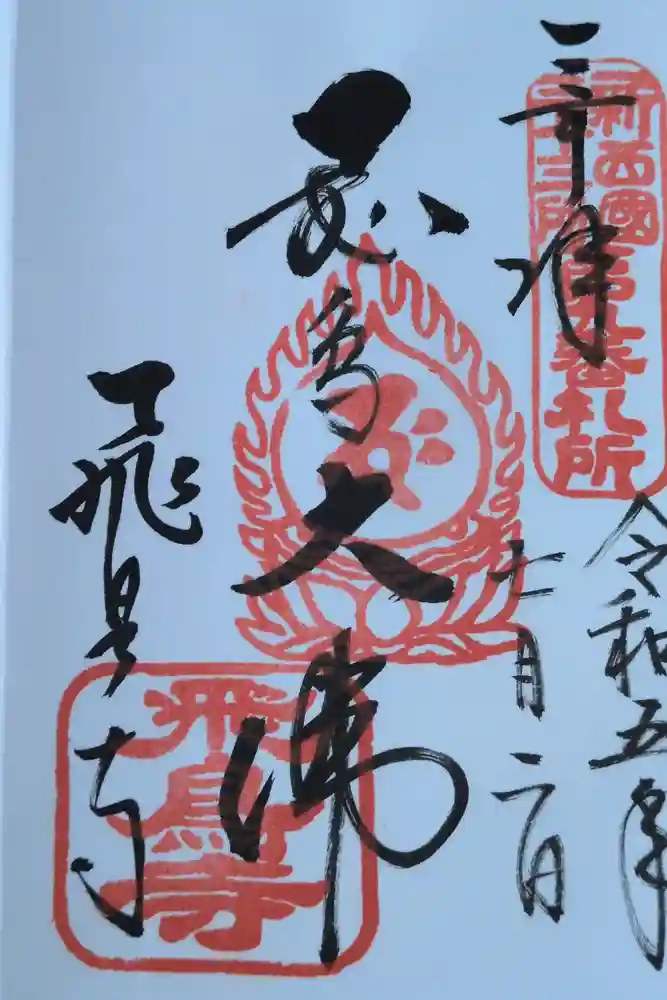 奉拝
新西國
三十三所
第九番札所
令和五年
七月二日
飛鳥大佛
飛鳥寺
飛鳥寺